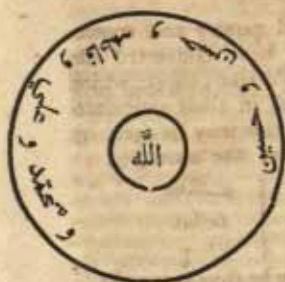 الله
و محمد و علي و فاطمه و حسن و حسين